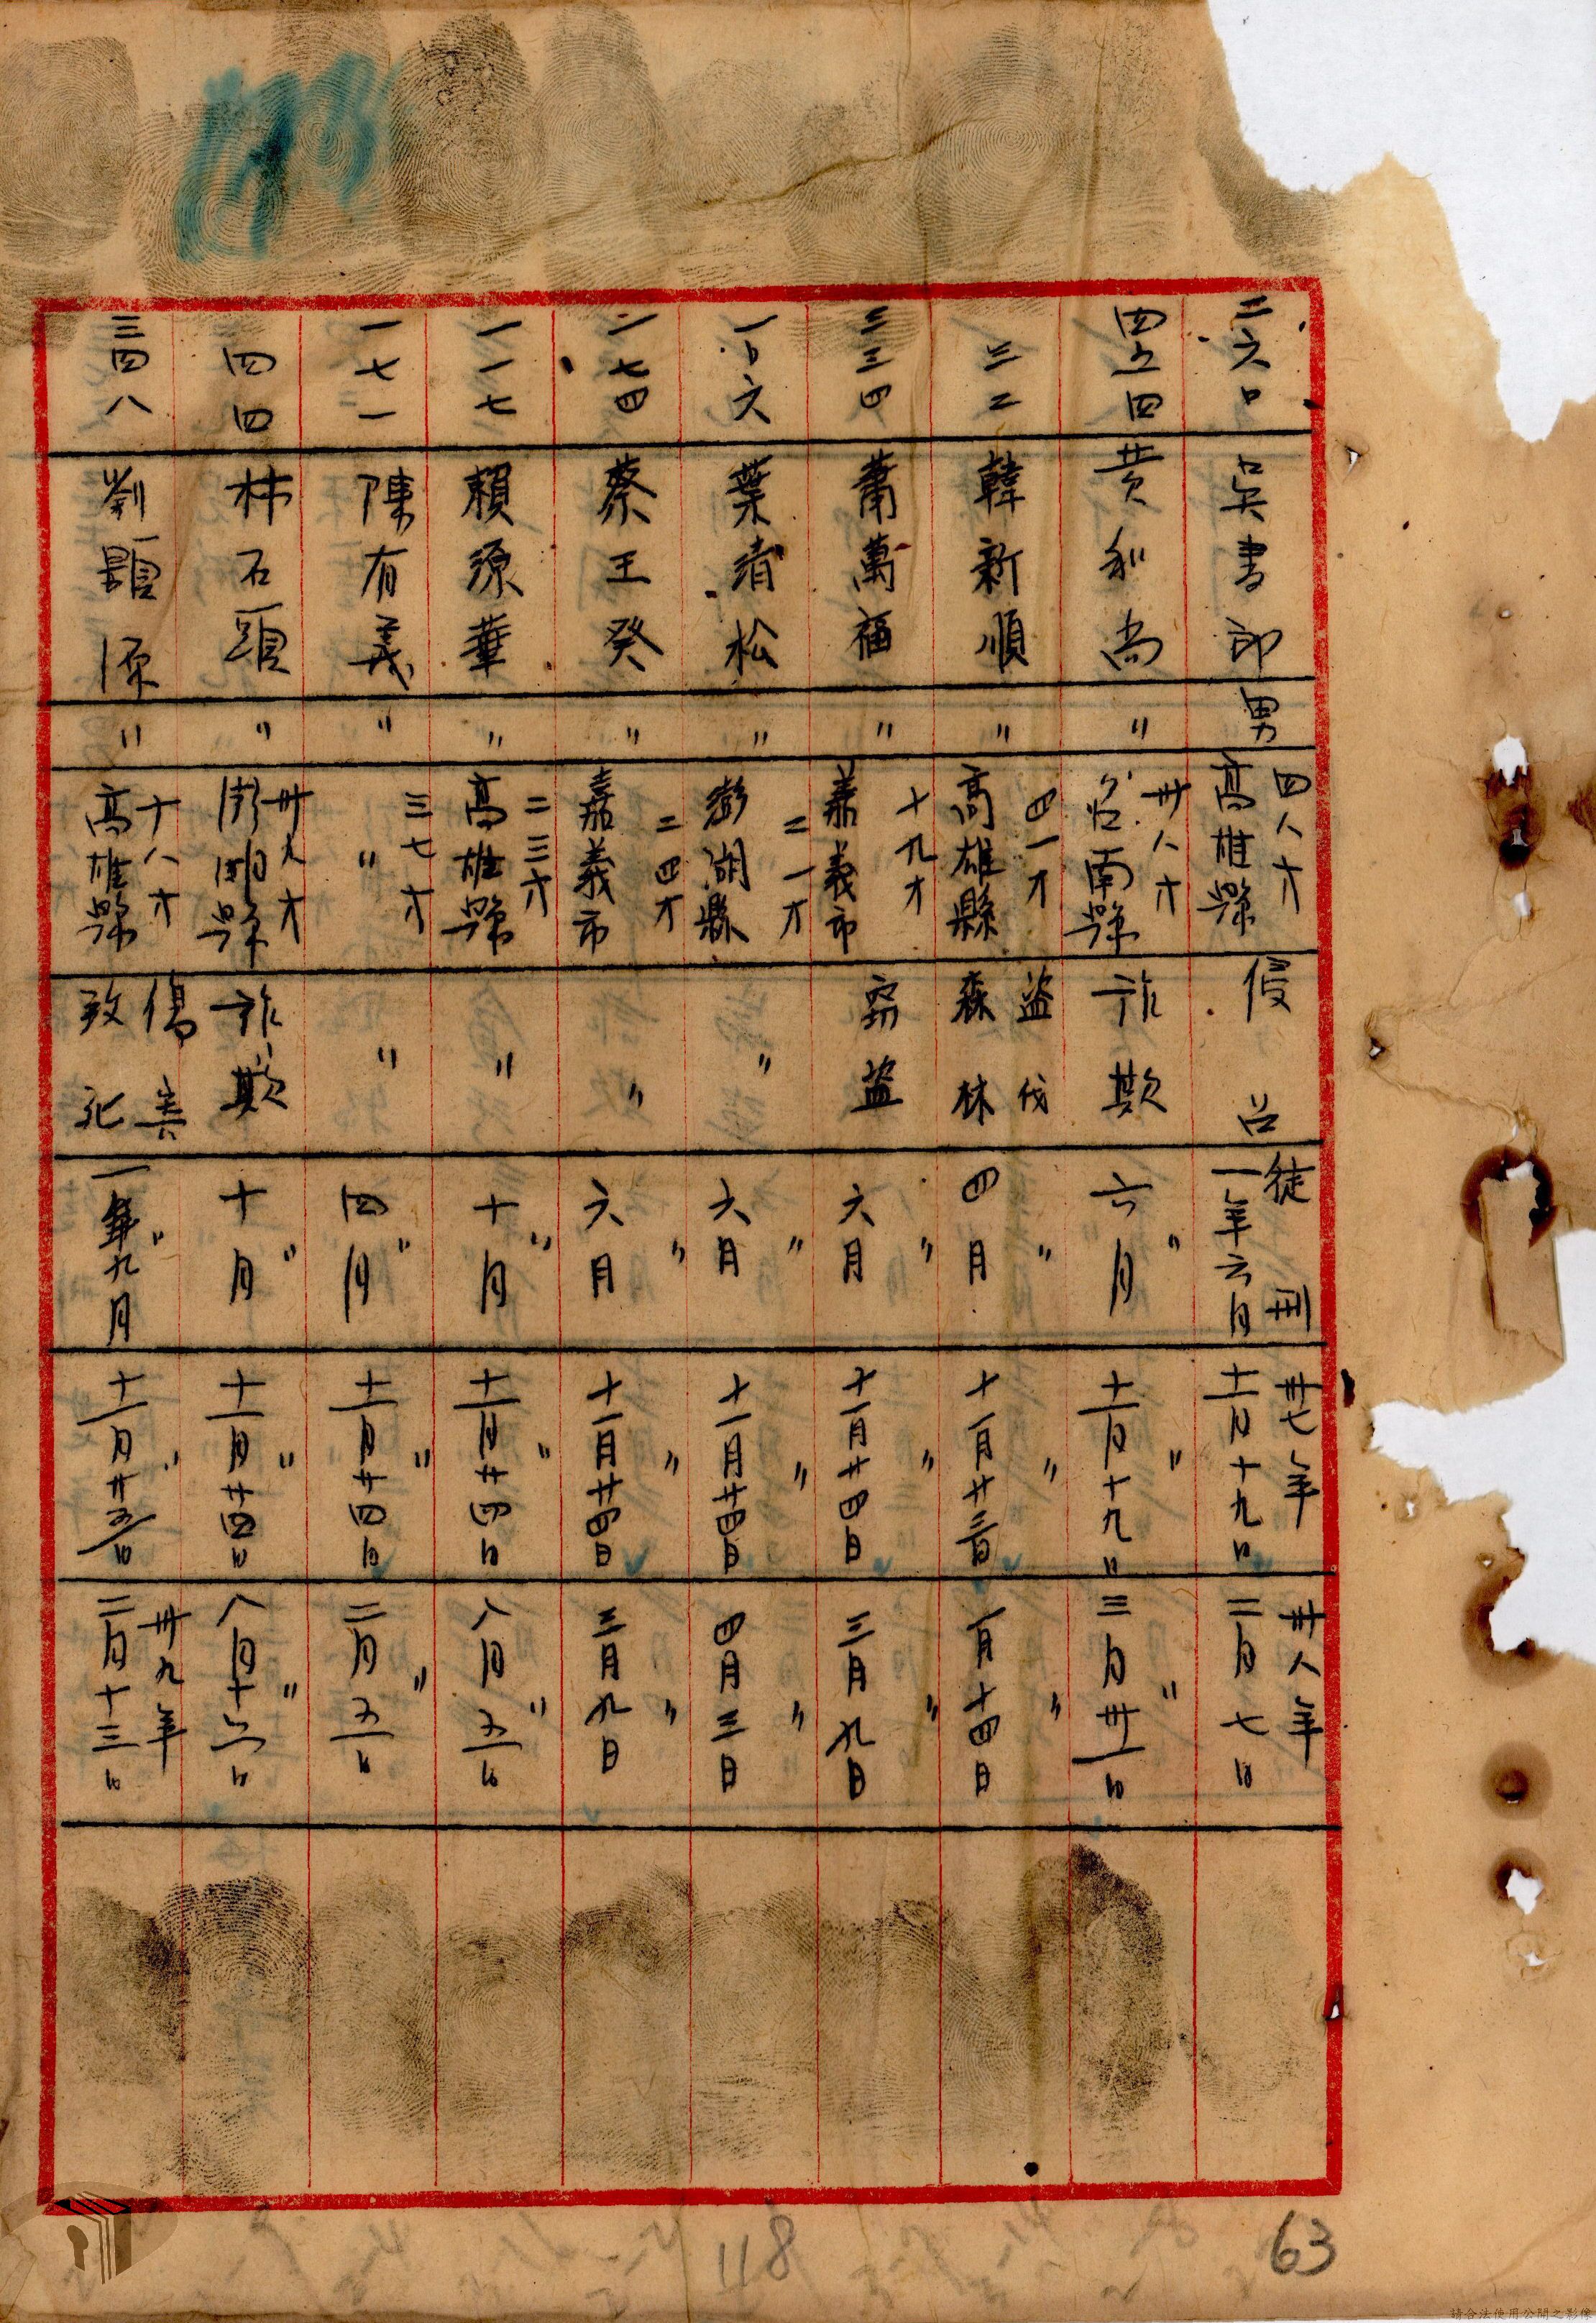 二六〇 吳書郎 男 四八才 高雄縣 侵占 徒刑 一年六月 卅七年 十一月十九日 卅八年 二月七日
四五四 黄和尚 〃 卅八才 台南縣 詐欺 〃 六月 〃 十一月十九日 〃 三月卅一日
三二 韓新順 〃 四一才 高雄縣 盜伐森林 〃 四月 〃 十一月廿三日 〃 一月十四日
三三四 蕭萬福 〃 十九才 嘉義市 竊盜 〃 六月 〃 十一月廿四日 〃 三月九日
一〇六 葉清松 〃 二一才 澎湖縣 〃 〃 六月 〃 十一月廿四日 〃 四月三日
一七四 蔡王癸 〃 二四才 嘉義市 〃 〃 六月 〃 十一月廿四日 〃 三月九日
一一七 賴源華 〃 二三才 高雄縣 〃 〃 十月 〃 十一月廿四日 〃 八月五日
一七一 陳有義 〃 三七才 〃 〃 〃 四月 〃 十一月廿四日 〃 二月五日
四四 林石頭 〃 卅九才 縣 詐欺 〃 十月 〃 十一月廿四日 〃 八月十六日
三四八 劉顯源 〃 十八才 高雄縣 傷害致死 〃 一年九月 〃 十一月廿五日 卅九年 二月十三日
118
63
請合法使用公開之影像